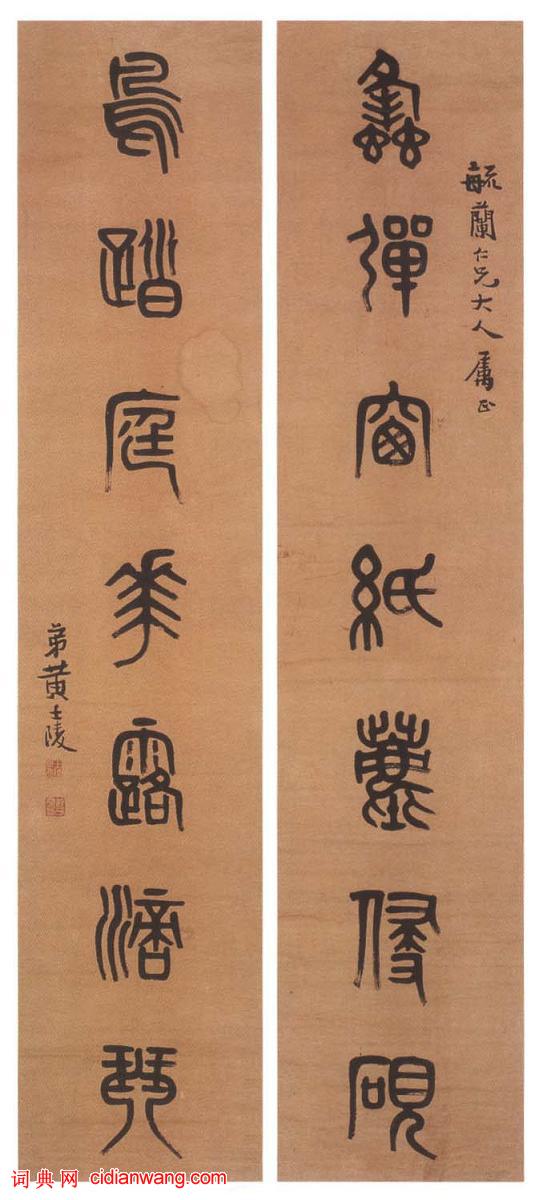 毓蘭仁兄大人屬正
蠭彈窗紙塵侵硯
鳥踏庭花露滴琴
弟黃士陵
词典网 cidianwang.com